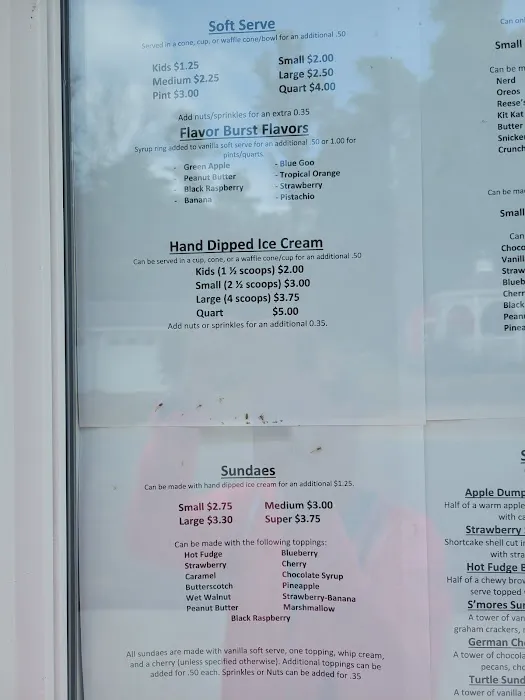 Soft Serve
Served in a cone, cup, or waffle cone/bowl for an additional .50
Kids $1.25 Small $2.00
Medium $2.25 Large $2.50
Pint $3.00 Quart $4.00
Add nuts/sprinkles for an extra 0.35
Flavor Burst Flavors
Syrup ring added to vanilla soft serve for an additional .50 or 1.00 for
pints/quarts.
- Green Apple - Blue Goo
- Peanut Butter - Tropical Orange
- Black Raspberry - Strawberry
- Banana - Pistachio
Hand Dipped Ice Cream
Can be served in a cup, cone, or a waffle cone/cup for an additional .50
Kids (1 ½ scoops) $2.00
Small (2 ½ scoops) $3.00
Large (4 scoops) $3.75
Quart $5.00
Add nuts or sprinkles for an additional 0.35.
Sundaes
Can be made with hand dipped ice cream for an additional $1.25.
Small $2.75 Medium $3.00
Large $3.30 Super $3.75
Can be made with the following toppings:
Hot Fudge Blueberry
Strawberry Cherry
Caramel Chocolate Syrup
Butterscotch Pineapple
Wet Walnut Strawberry-Banana
Peanut Butter Marshmallow
Black Raspberry
All sundaes are made with vanilla soft serve, one topping, whip cream,
and a cherry (unless specified otherwise). Additional toppings can be
added for .50 each. Sprinkles or Nuts can be added for .35
Can
Small
Can be
Nerd
Oreos
Reese's
Kit Kat
Butter
Crunch
Can be
Small
Can
Apple
Half of a warm apple
with
Strawberry
Shortcake shell cut
with
Hot Fudge
Half of a chewy
serve topped
S'mores
A tower of
graham crackers,
German
A tower of
pecans,
Turtle
A tower of vanilla